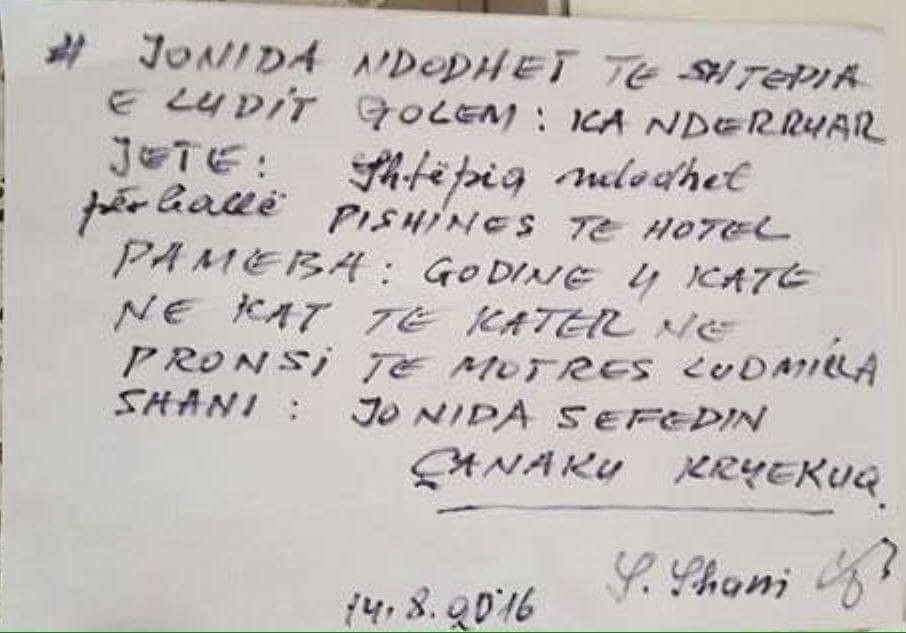 JONIDA NDODHET TE SHTEPIA
E LUDIT GOLEM: KA NDERRUAR
JETE: Shtëpia ndodhet
përballë PISHINES TE HOTEL
PAMEBA: GODINE 4 KATE
NE KAT TE KATER NE
PRONSI TE MOTRES LUDMILLA
SHANI: JONIDA SEFEDIN
ÇANAKU KRYEKUQ.
S. Shani
14.8.2016